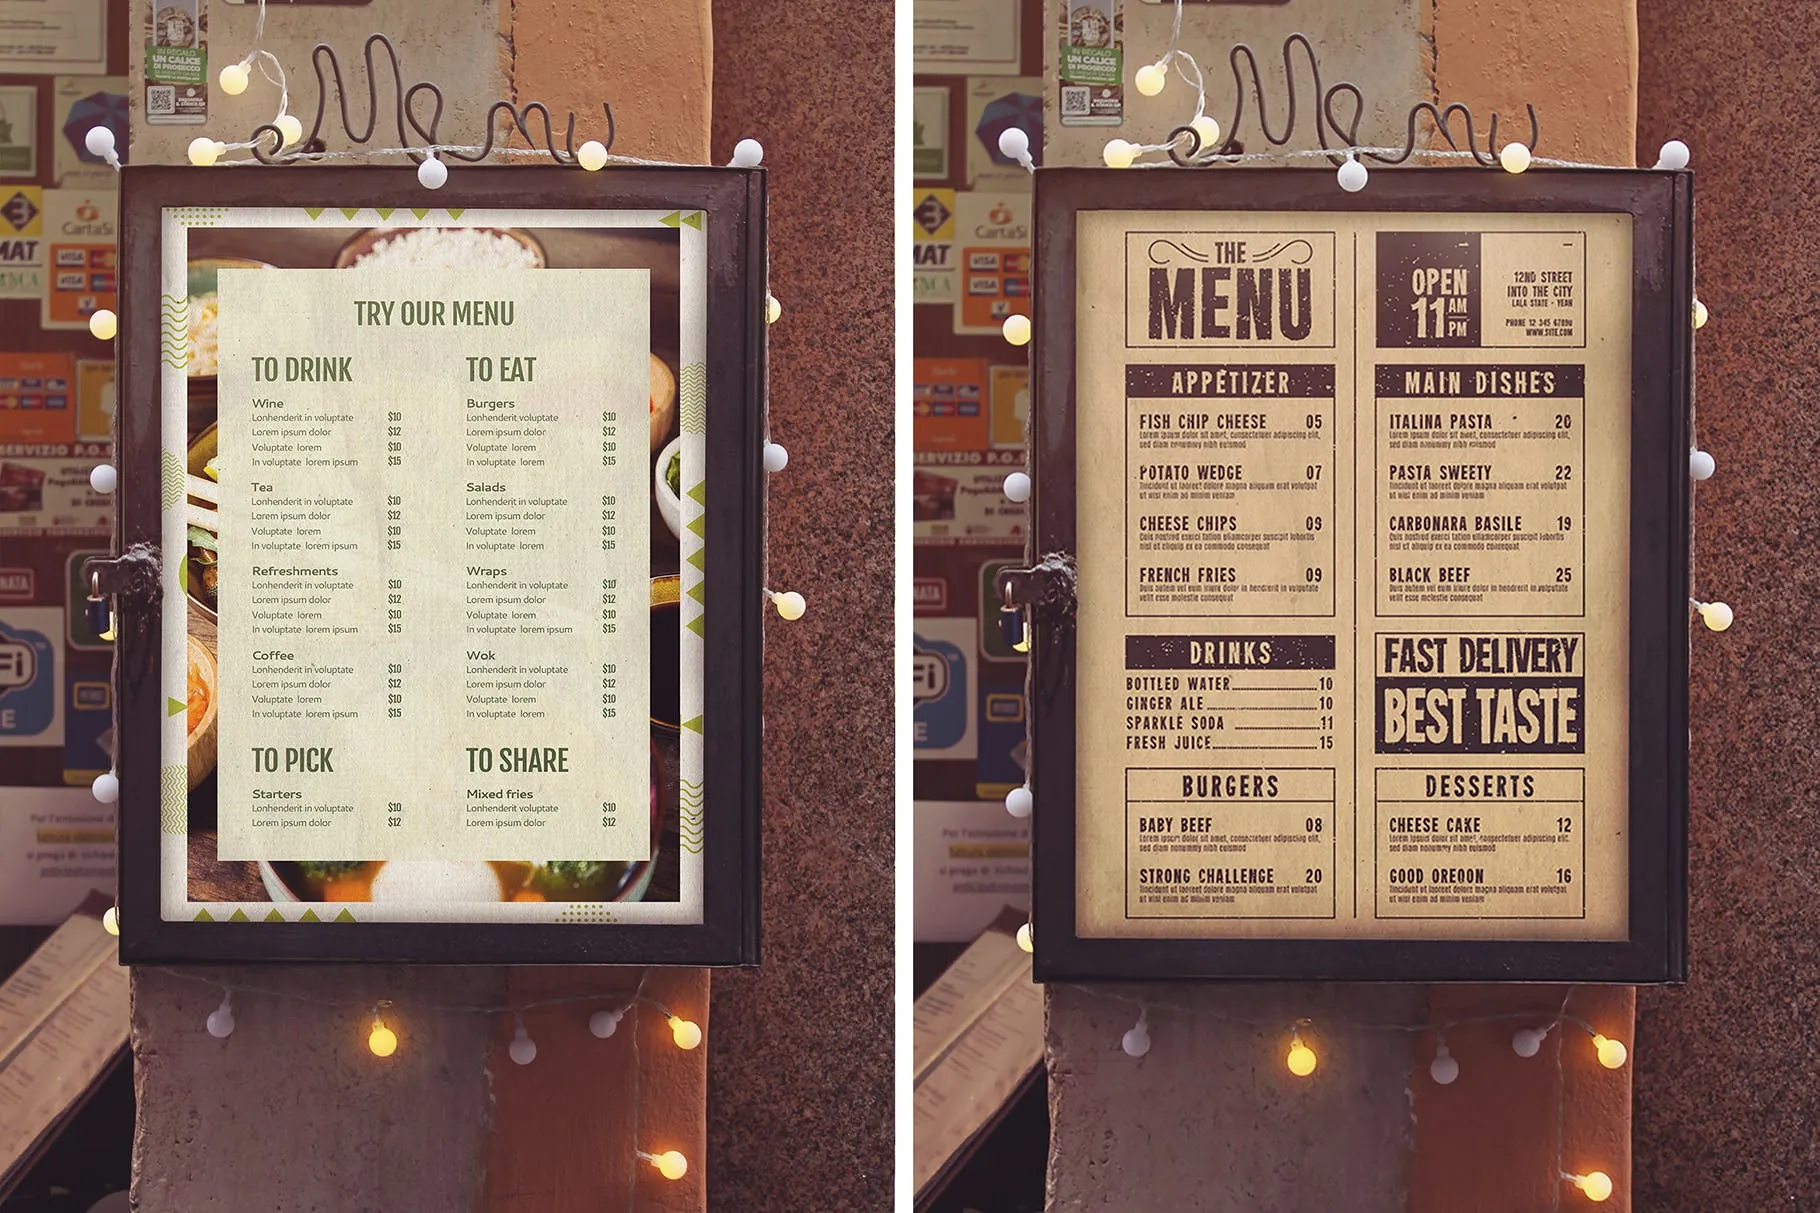 IN REGALO
UN CALICE
DI PROSECCO
Menu
CartaSi
VISA
MAT
SERVIZIO P.O.S
TRY OUR MENU
TO DRINK
Wine
Lonhenderit in voluptate $10
Lorem ipsum dolor $12
Voluptate lorem $10
In voluptate lorem ipsum $15
Tea
Lonhenderit in voluptate $10
Lorem ipsum dolor $12
Voluptate lorem $10
In voluptate lorem ipsum $15
Refreshments
Lonhenderit in voluptate $10
Lorem ipsum dolor $12
Voluptate lorem $10
In voluptate lorem ipsum $15
Coffee
Lonhenderit in voluptate $10
Lorem ipsum dolor $12
Voluptate lorem $10
In voluptate lorem ipsum $15
TO PICK
Starters
Lonhenderit in voluptate $10
Lorem ipsum dolor $12
TO EAT
Burgers
Lonhenderit voluptate $10
Lorem ipsum dolor $12
Voluptate lorem $10
In voluptate lorem $15
Salads
Lonhenderit in voluptate $10
Lorem ipsum dolor $12
Voluptate lorem $10
In voluptate lorem $15
Wraps
Lonhenderit in voluptate $10
Lorem ipsum dolor $12
Voluptate lorem $10
In voluptate lorem ipsum $15
Wok
Lonhenderit in voluptate $10
Lorem ipsum dolor $12
Voluptate lorem $10
In voluptate lorem $15
TO SHARE
Mixed fries
Lonhenderit voluptate $10
Lorem ipsum dolor $12
IN REGALO
UN CALICE
DI PROSECCO
Menu
CartaSi
VISA
MAT
SERVIZIO P.O.S
THE
MENU
APPETIZER
FISH CHIP CHEESE 05
Lorem ipsum dolor sit amet, consectetuer adipiscing elit,
sed diam nonummy nibh euismod
POTATO WEDGE 07
Tincidunt ut laoreet dolore magna aliquam erat volutpat
ut wisi enim ad minim veniam
CHEESE CHIPS 09
Quis nostrud exerci tation ullamcorper suscipit lobortis
nisl ut aliquip ex ea commodo consequat
FRENCH FRIES 09
Duis autem vel eum iriure dolor in hendrerit in vulputate
velit esse molestie consequat
DRINKS
BOTTLED WATER 10
GINGER ALE 10
SPARKLE SODA 11
FRESH JUICE 15
BURGERS
BABY BEEF 08
Lorem ipsum dolor sit amet, consectetuer adipiscing elit,
sed diam nonummy nibh euismod
STRONG CHALLENGE 20
Tincidunt ut laoreet dolore magna aliquam erat volutpat
ut wisi enim ad minim veniam
OPEN
11 AM
PM
12ND STREET
INTO THE CITY
LALA STATE - YEAH
PHONE 12 345 67890
WWW.SITE.COM
MAIN DISHES
ITALINA PASTA 20
Lorem ipsum dolor sit amet, consectetuer adipiscing elit,
sed diam nonummy nibh euismod
PASTA SWEETY 22
Tincidunt ut laoreet dolore magna aliquam erat volutpat
ut wisi enim ad minim veniam
CARBONARA BASILE 19
Quis nostrud exerci tation ullamcorper suscipit lobortis
nisl ut aliquip ex ea commodo consequat
BLACK BEEF 25
Duis autem vel eum iriure dolor in hendrerit in vulputate
velit esse molestie consequat
FAST DELIVERY
BEST TASTE
DESSERTS
CHEESE CAKE 12
Lorem ipsum dolor sit amet, consectetuer adipiscing elit,
sed diam nonummy nibh euismod
GOOD OREOON 16
Tincidunt ut laoreet dolore magna aliquam erat volutpat
ut wisi enim ad minim veniam